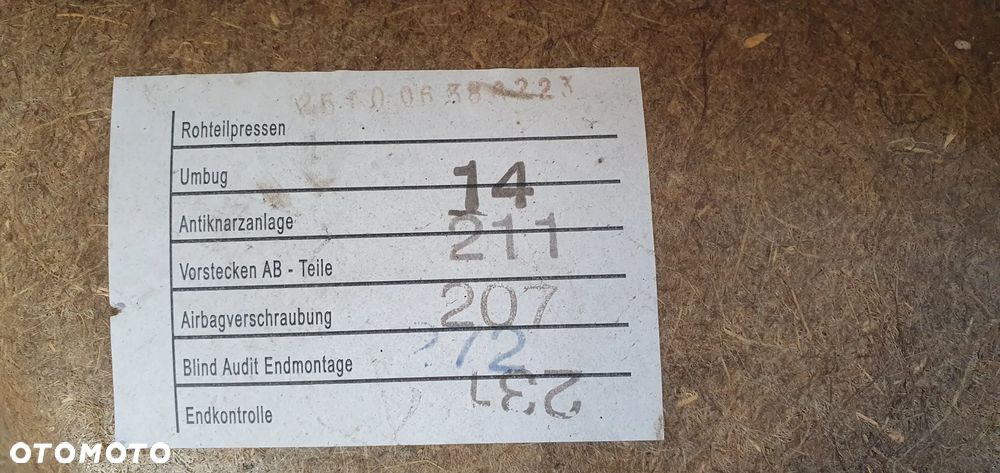 Rohteilpressen
Umbug
14
Antiknarzanlage
211
Vorstecken AB - Teile
207
Airbagverschraubung
272
Blind Audit Endmontage
231
Endkontrolle
OTOMOTO